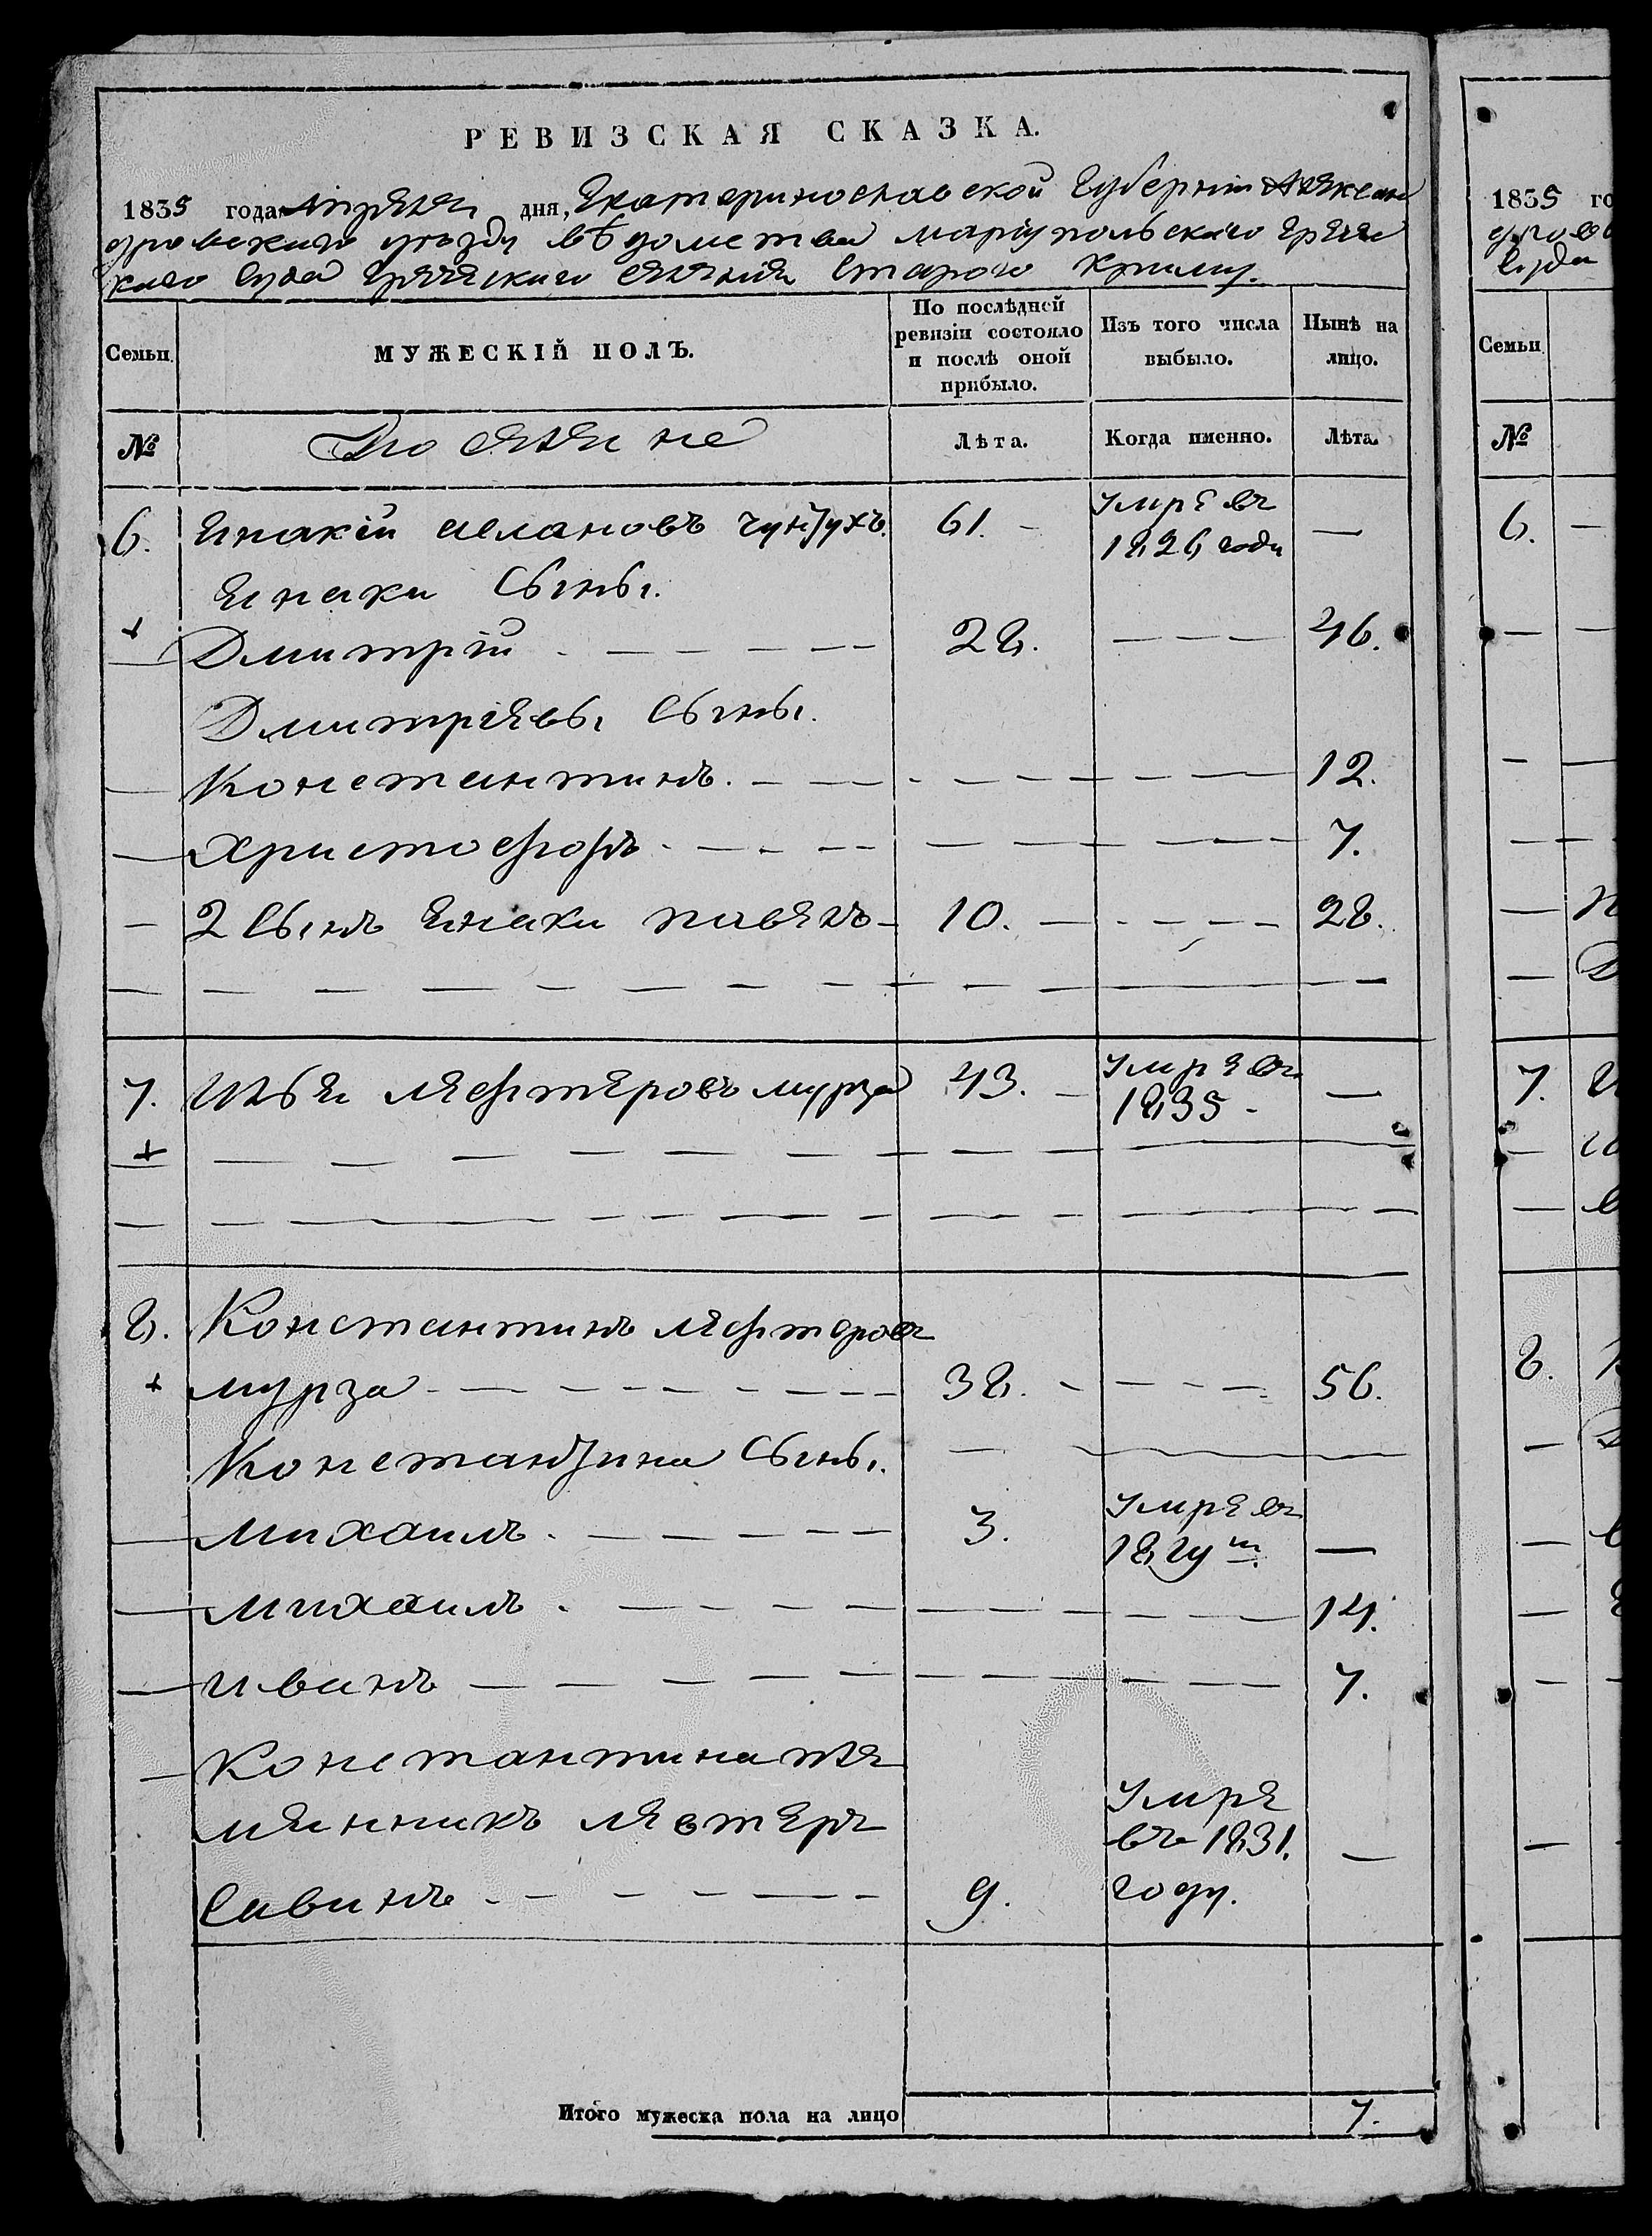 РЕВИЗСКАЯ СКАЗКА.
1835 года Апреля дня, Екатеринославской Губернии Алексан
дровскаго уезду вѣдомства мариупольскаго гречес
каго Суда греческаго селения Стараго Крыму.
Семьи. МУЖЕСКІЙ ПОЛЪ. По послѣдней ревизіи состояло и послѣ оной прибыло. Изъ того числа выбыло. Нынѣ на лицо.
№ Поселяне Лѣта. Когда именно. Лѣта.
6. Енакій аслановъ чунтухъ. 61. — умре въ 1826 годы —
Енаки Сыны.
+ Дмитрій — — — — — 28. — — — 46.
Дмитріевы Сыны.
— Константинъ. — — — — — — — — 12.
— Христофоръ — — — — — — — — 7.
— 2 Сынъ Енаки павелъ — 10. — — — — 28.
7. Илья лефтеровъ мурза 43. — умре въ 1835 - —
+
8. Константинъ лефтеровъ
+ мурза — — — — — 38. — — — — 56.
Константина Сыны.
— михаилъ. — — — — — 3. умре въ 18
— михаилъ. — — — — — — — — — 14.
— иванъ — — — — — — — — — 7.
— Константина пле
мянникъ лефтеръ умре
Савинъ — — — — — 9. въ 1831. году. —
Итого мужеска пола на лицо 7.
1835 го
Суда
Семьи
№
6. —
7. И
8.